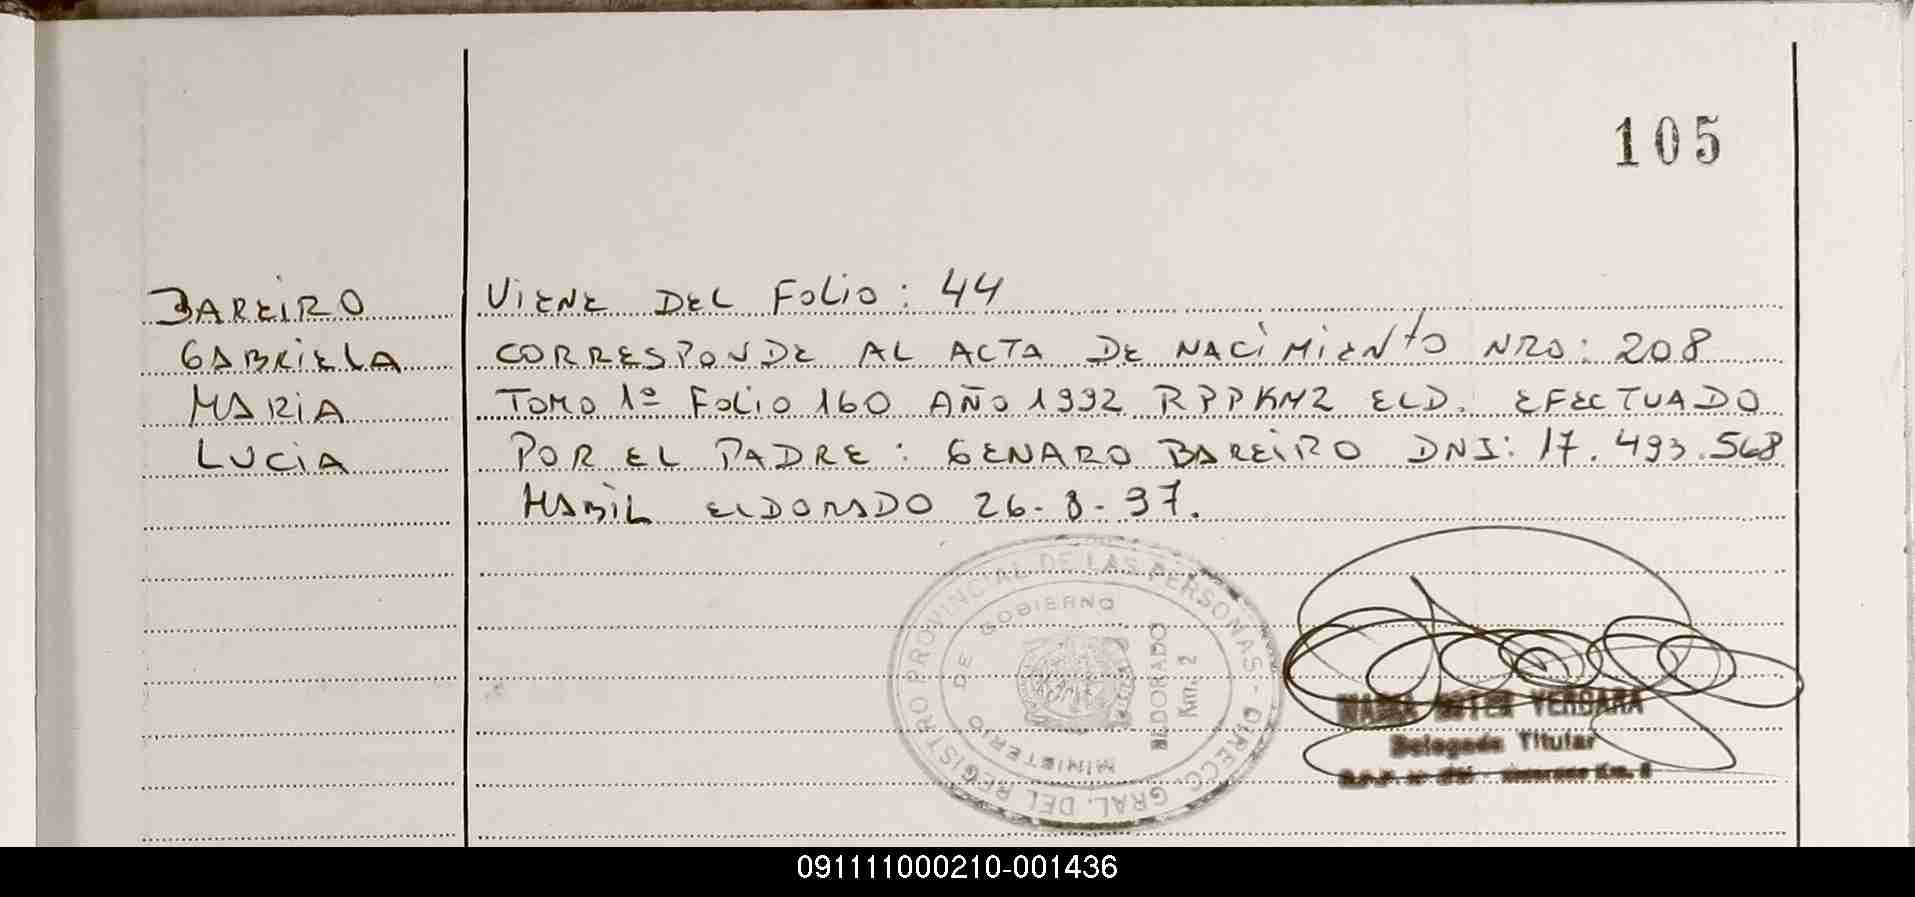 105
BAREIRO
GABRIELA
MARIA
LUCIA
VIENE DEL FOLIO: 44
CORRESPONDE AL ACTA DE NACIMIENTO NRO: 208
TOMO 1º FOLIO 160 AÑO 1992 RPPKM2 ELD. EFECTUADO
POR EL PADRE: GENARO BAREIRO DNI: 17.493.568
ELDORADO 26-8-97.
DIRECC. GRAL. DEL REGISTRO PROVINCIAL DE LAS PERSONAS -
MINISTERIO DE GOBIERNO
ELDORADO
Km. 2
VERGARA
Delegada Titular
091111000210-001436